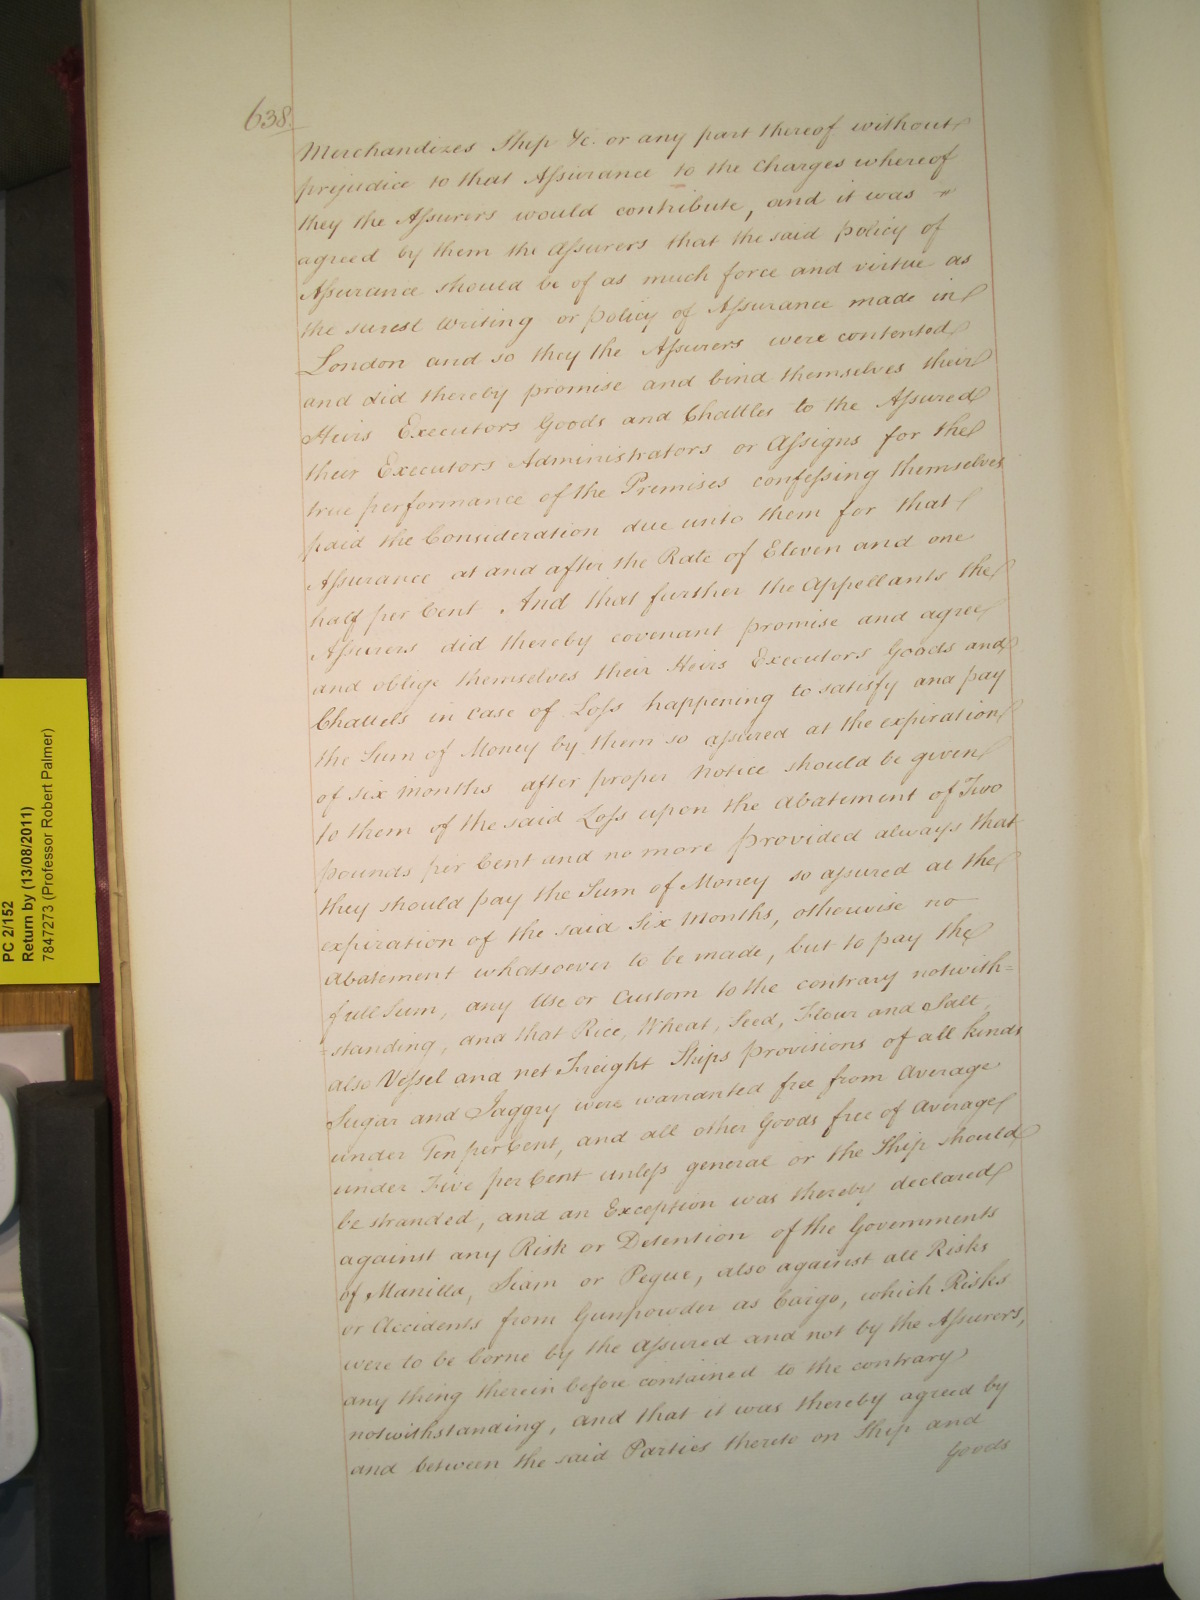 638.
Merchandizes Ship &c. or any part thereof without
prejudice to that Assurance to the Charges whereof
they the Assurers would contribute, and it was
agreed by them the Assurers that the said policy of
Assurance should be of as much force and virtue as
the surest Writing or policy of Assurance made in
London and so they the Assurers were contented
and did thereby promise and bind themselves their
Heirs Executors Goods and Chattles to the Assured
their Executors Administrators or Assigns for the
true performance of the Premises confessing themselves
paid the Consideration due unto them for that
Assurance at and after the Rate of Eleven and one
half per Cent And that further the Appellants the
Assurers did thereby covenant promise and agree
and oblige themselves their Heirs Executors Goods and
Chattels in case of Loss happening to satisfy and pay
the Sum of Money by them so assured at the expiration
of six Months after proper Notice should be given
to them of the said Loss upon the Abatement of Two
pounds per Cent and no more provided always that
they should pay the Sum of Money so assured at the
expiration of the said Six Months, otherwise no
Abatement whatsoever to be made, but to pay the
full Sum, any Use or Custom to the contrary notwith=
=standing, and that Rice, Wheat, Seed, Flour and Salt
also Vessel and net Freight Ships provisions of all kinds
Sugar and Jaggry were warranted free from Average
under Ten per Cent, and all other Goods free of Average
under Five per Cent unless general or the Ship should
be stranded, and an Exception was thereby declared
against any Risk or Detention of the Governments
of Manilla, Siam or Pegue, also against all Risks
or Accidents from Gunpowder as Cargo, which Risks
were to be borne by the Assured and not by the Assurers,
any thing therein before contained to the contrary
notwithstanding, and that it was thereby agreed by
and between the said Parties thereto on Ship and
Goods
PC 2/152
Return by (13/08/2011)
7847273 (Professor Robert Palmer)